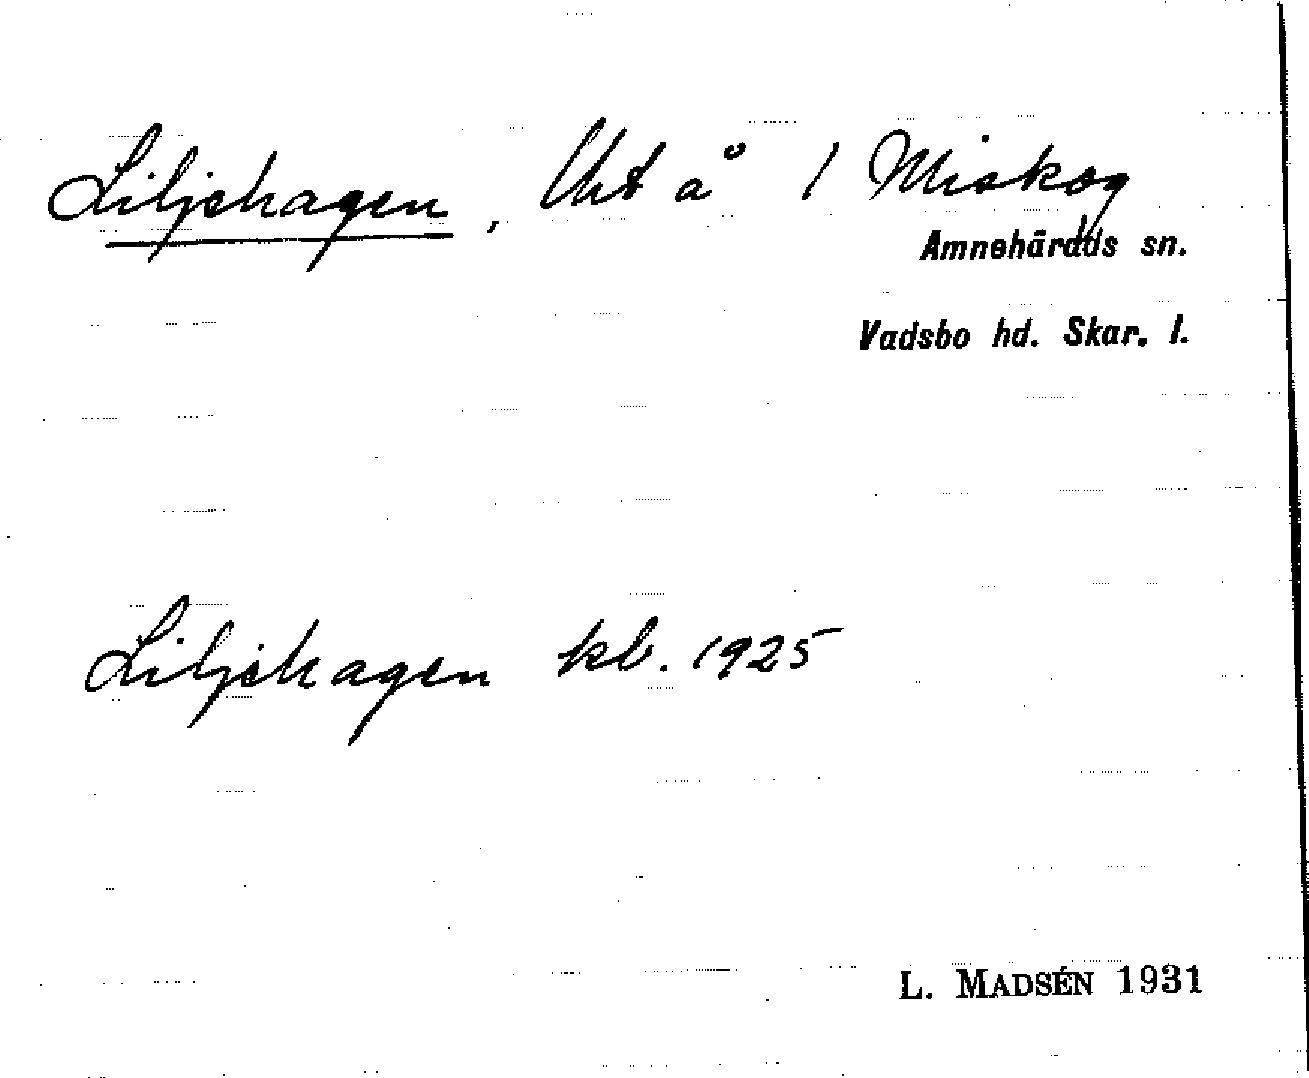 Liljehagen, Uht å 1 Miskog
Amnehärads sn.
Vadsbo hd. Skar. l.
Liljehagen kb. 1925
L. MADSÉN 1931